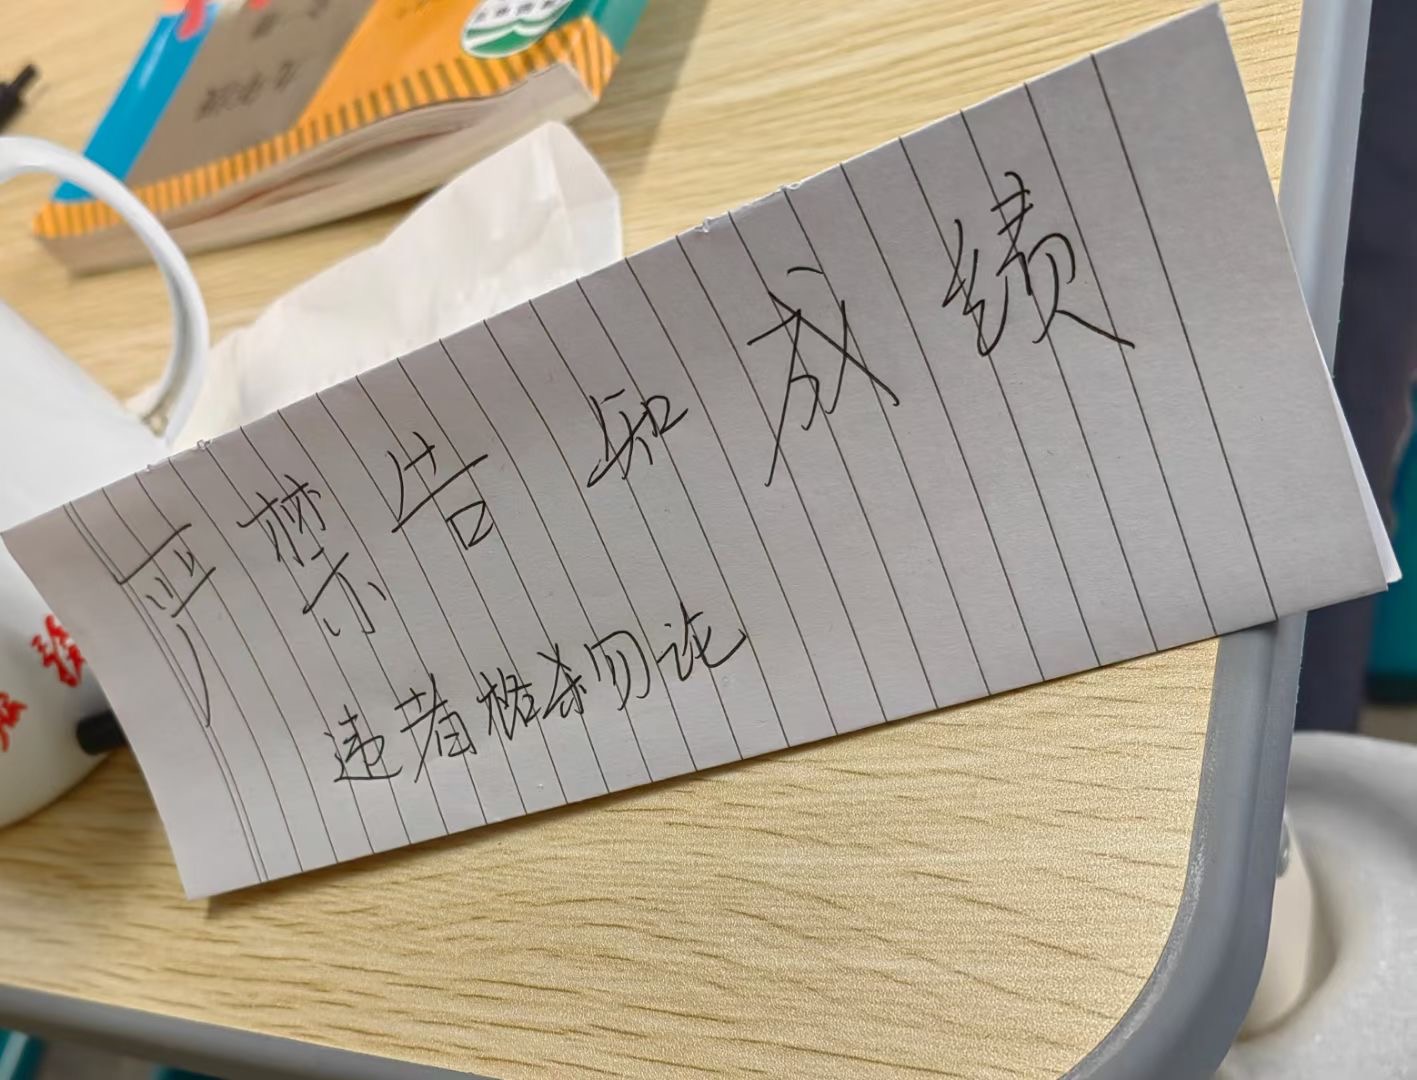 严禁告知成绩
违者格杀勿论